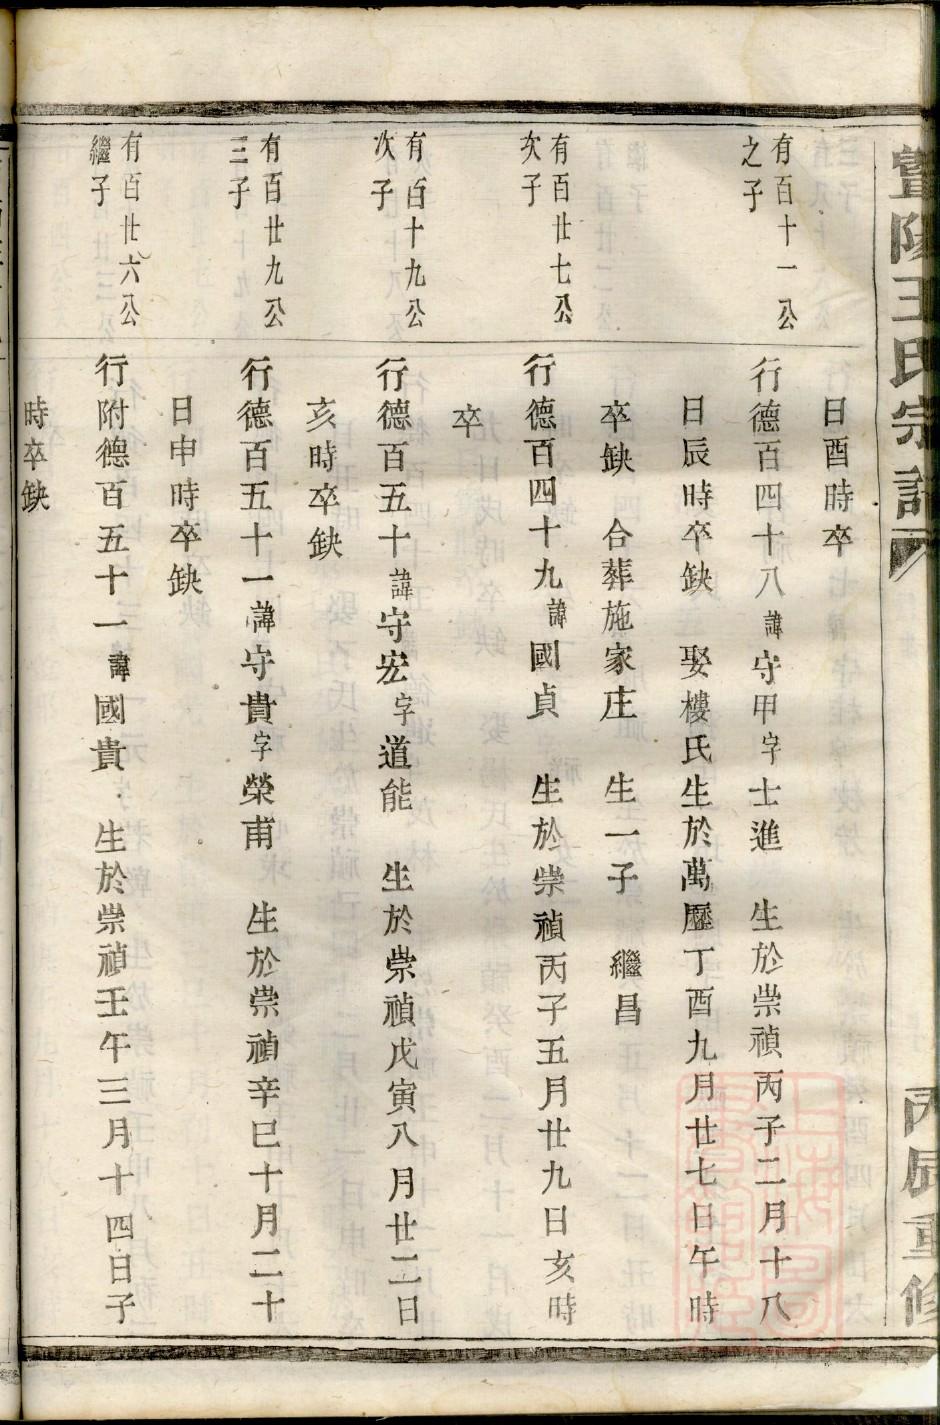 暨陽王氏宗譜
丙辰重修
日酉時卒
有百十一公
之子
行德百四十八諱守甲字士進 生於崇禎丙子二月十八
日辰時卒缺 娶樓氏生於萬曆丁酉九月廿七日午時
卒缺 合葬施家庄 生一子 繼昌
有百廿七公
次子
行德百四十九諱國貞 生於崇禎丙子五月廿九日亥時
卒
有百十九公
次子
行德百五十諱守宏字道能 生於崇禎戊寅八月廿二日
亥時卒缺
有百廿九公
三子
行德百五十一諱守貴字榮甫 生於崇禎辛巳十月二十
日申時卒缺
有百廿六公
繼子
行附德百五十一諱國貴 生於崇禎壬午三月十四日子
時卒缺